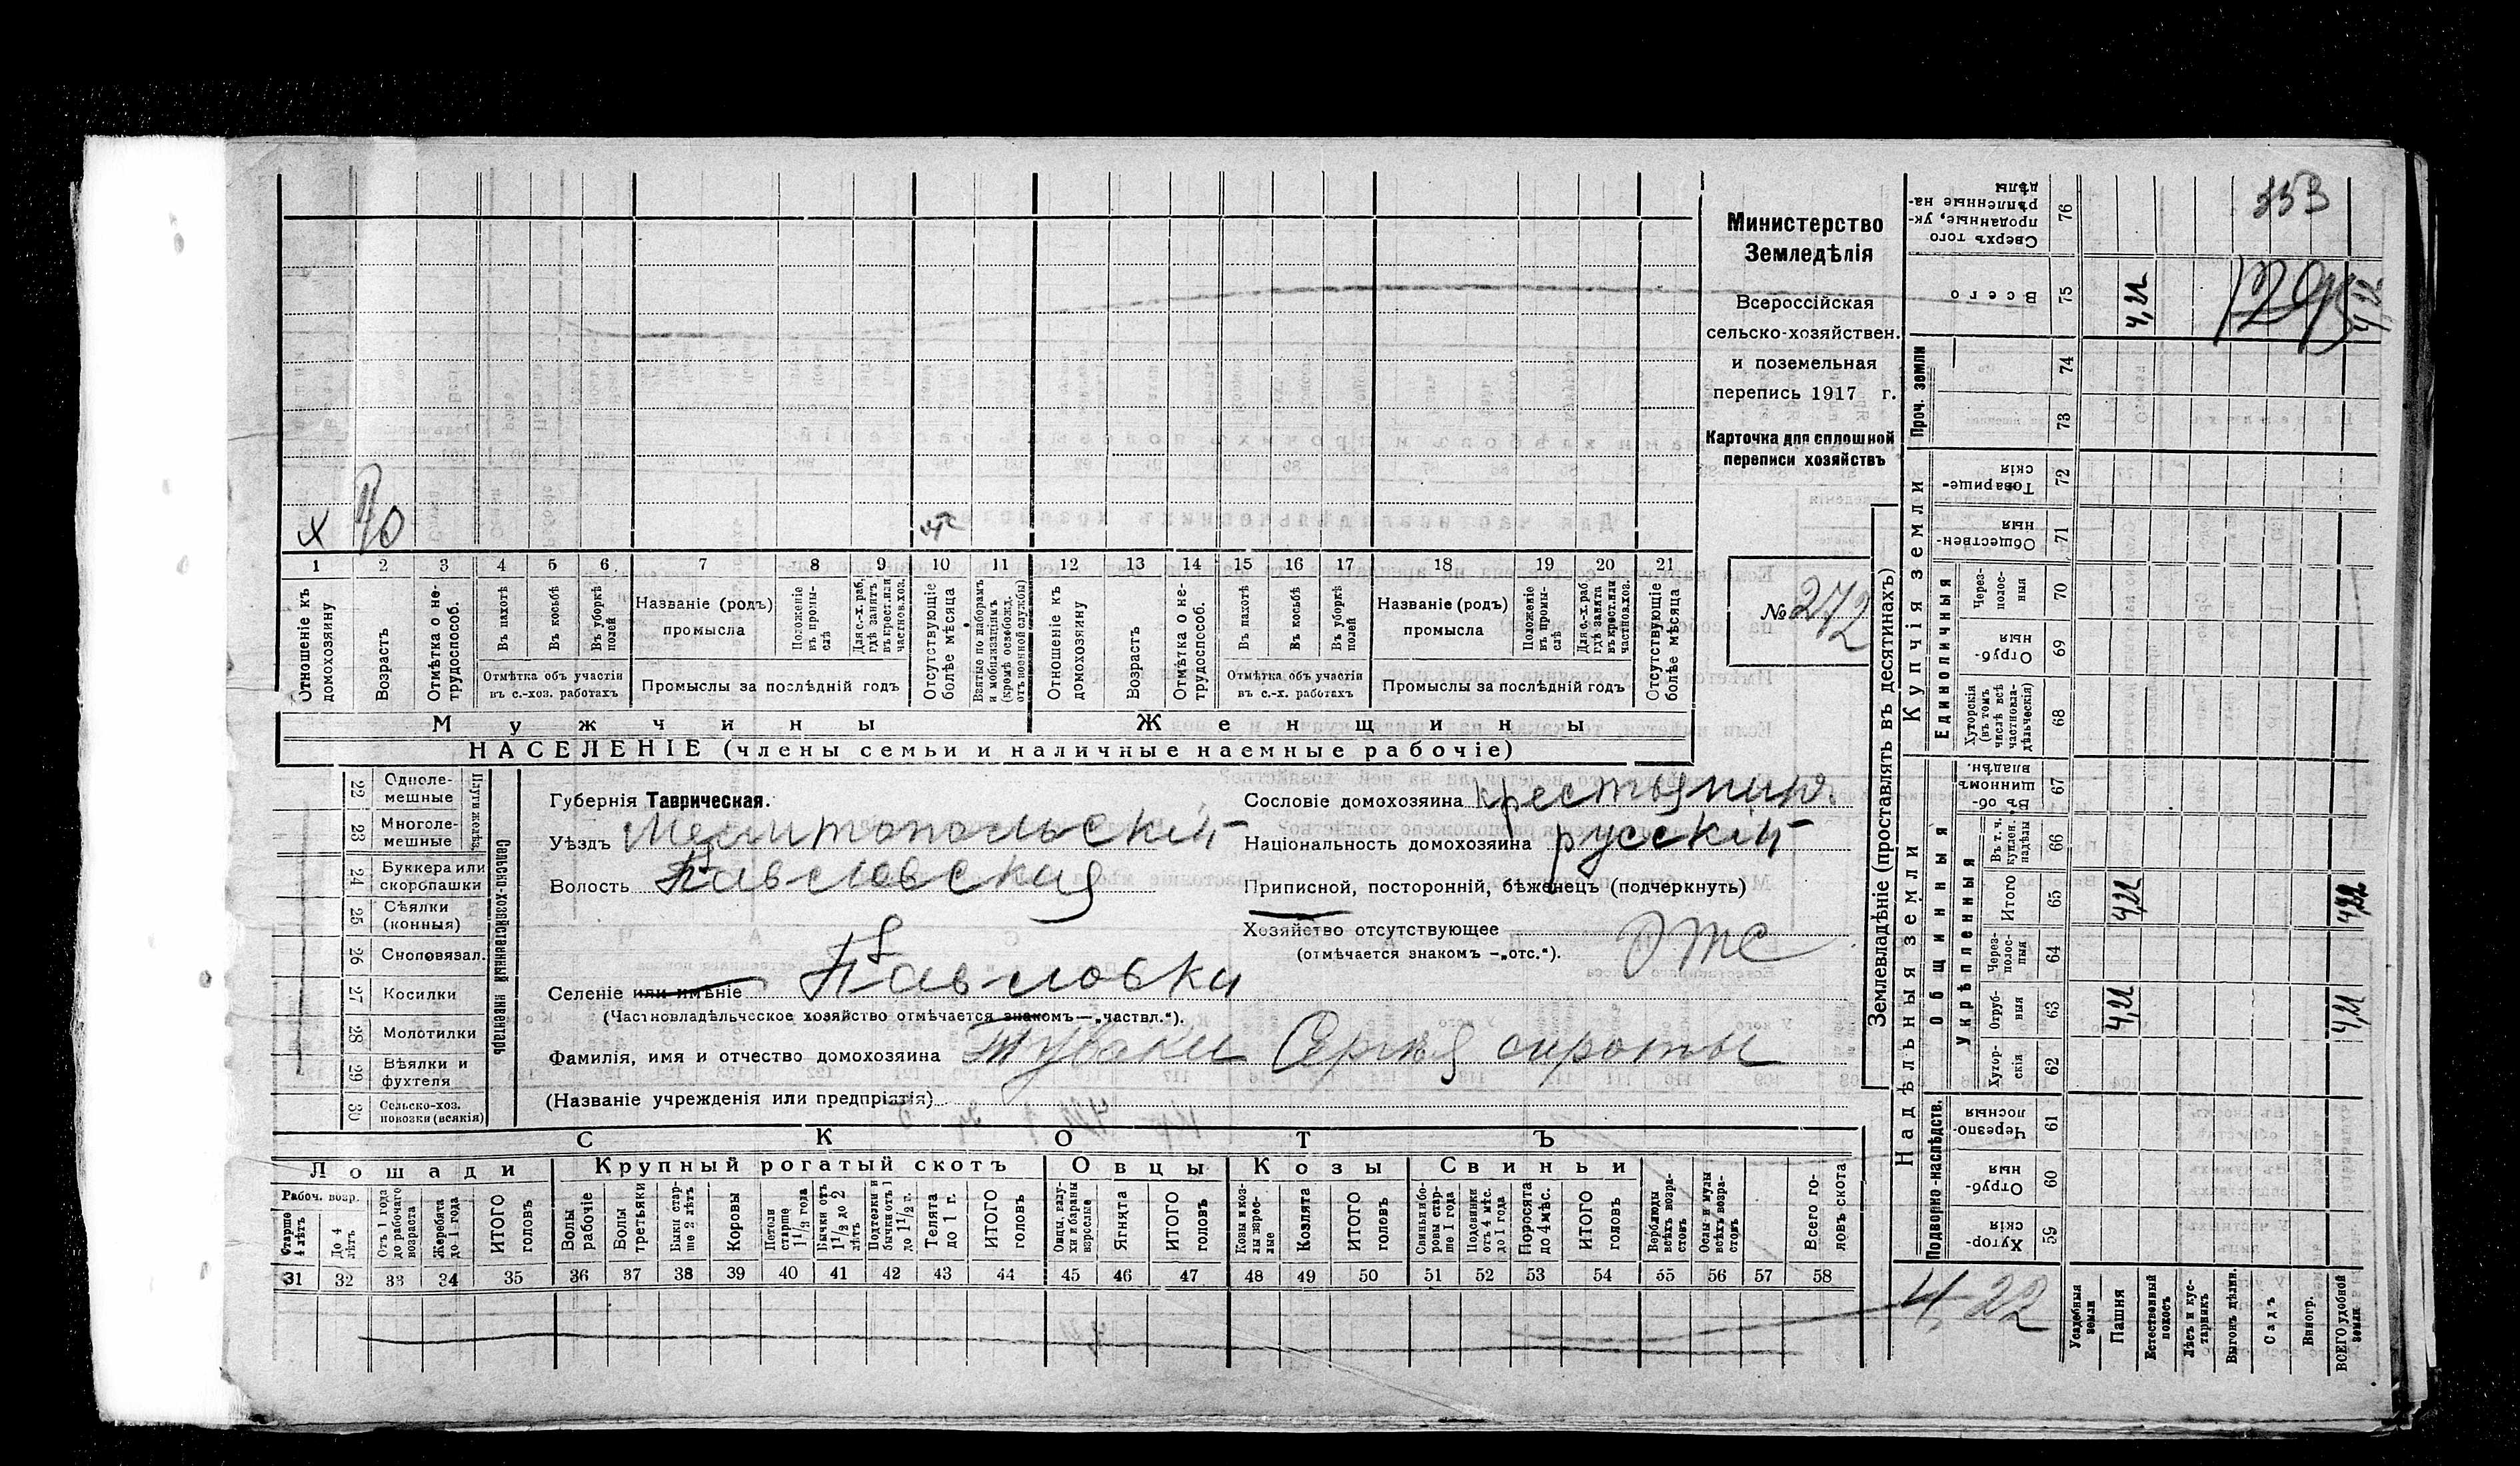 353
Министерство
Земледѣлія
Всероссійская
сельско-хозяйствен.
и поземельная
перепись 1917 г.
Карточка для сплошной
переписи хозяйствъ
№ 272
х 40
отс
1 2 3 4 5 6 7 8 9 10 11 12 13 14 15 16 17 18 19 20 21
Отношеніе къ домохозяину
Возрастъ
Отмѣтка о не-трудоспособ.
Въ пахотѣ
Въ косьбѣ
Въ уборкѣ полей
Отмѣтка объ участіи
въ с.-хоз. работахъ
Названіе (родъ)
промысла
Положеніе въ промы-слѣ
Для с.-х. раб. гдѣ занятъ въ крест. или частновл. хоз.
Промыслы за послѣдній годъ
Отсутствующіе болѣе мѣсяца
Взятые по наборамъ и мобилизаціямъ (кромѣ освобожд. отъ военной службы)
Отношеніе къ домохозяину
Возрастъ
Отмѣтка о не-трудоспособ.
Въ пахотѣ
Въ косьбѣ
Въ уборкѣ полей
Отмѣтка объ участіи
въ с.-х. работахъ
Названіе (родъ)
промысла
Положеніе въ промы-слѣ
Для с.-х. раб. гдѣ занята въ крест. или частновл. хоз.
Промыслы за послѣдній годъ
Отсутствующіе болѣе мѣсяца
Мужчины
Женщины
НАСЕЛЕНІЕ (члены семьи и наличные наемные рабочіе)
Сельско-хозяйственный инвентарь
22 Одноле-мешные
23 Многоле-мешные
24 Буккера или скоропашки
25 Сѣялки (конныя)
26 Сноповязал.
27 Косилки
28 Молотилки
29 Вѣялки и фухтеля
30 Сельско-хоз. повозки (всякія)
Губернія Таврическая.
Уѣздъ Мелитопольскій
Волость Павловская
Селеніе или имѣніе Павловка
(Частновладѣльческое хозяйство отмѣчается знакомъ—„частвл.“).
Фамилія, имя и отчество домохозяина Сергѣя сироты
(Названіе учрежденія или предпріятія)
Сословіе домохозяина крестьянин.
Національность домохозяина русскій
Приписной, посторонній, бѣженецъ (подчеркнуть)
Хозяйство отсутствующее отс
(отмѣчается знакомъ -„отс.“).
СКОТЪ
Лошади
Крупный рогатый скотъ
Овцы
Козы
Свиньи
Рабоч. возр.
Старше 4 лѣтъ
До 4 лѣтъ
Отъ 1 года до рабочаго возраста
Жеребята до 1 года
ИТОГО головъ
Волы рабочіе
Волы третьяки
Быки стар-ше 2 лѣтъ
Коровы
Нетели старше 1 1/2 года
Бычки отъ 1 1/2 до 2 лѣтъ
Подтелки и бычки отъ 1 до 1 1/2 г.
Телята до 1 г.
ИТОГО головъ
Овцы, валу-хи и бараны взрослые
Ягнята
ИТОГО головъ
Козы и коз-лы взрос-лые
Козлята
ИТОГО головъ
Свиньи и бо-ровы стар-ше 1 года
Подсвинки отъ 4 мѣс. до 1 года
Поросята до 4 мѣс.
ИТОГО головъ
Верблюды всѣхъ возра-стовъ
Ослы и мулы всѣхъ возра-стовъ
Всего го-ловъ скота
31 32 33 34 35 36 37 38 39 40 41 42 43 44 45 46 47 48 49 50 51 52 53 54 55 56 57 58
4,22
Землевладѣніе (проставлять въ десятинахъ)
Надѣльныя земли
Купчія земли
Проч. земли
Подворно-наслѣдств.
Общинныя
Укрѣпленныя
Единоличныя
59 Хутор-скія
60 Отруб-ныя
61 Черезпо-лосныя
62 Хутор-скія
63 Отруб-ныя 4,22 4,22
64 Через-полос-ныя
65 Итого 4,22 4,22
66 Въ т. ч. куплен. надѣлы
67 Въ об-щинномъ владѣн.
68 Хуторскія (въ томъ числѣ всѣ частновла-дѣльческія)
69 Отруб-ныя
70 Через-полос-ныя
71 Обществен-ныя
72 Товарище-скія
73
74
75 Всего 4,22 4,22
76 Сверхъ того проданные, ук-рѣпленные на-дѣлы
Усадебныя земли
Пашня
Естественный покосъ
Лѣсъ и кус-тарникъ
Выгонъ дѣлин.
Садъ
Виногр.
ВСЕГО удобной земли